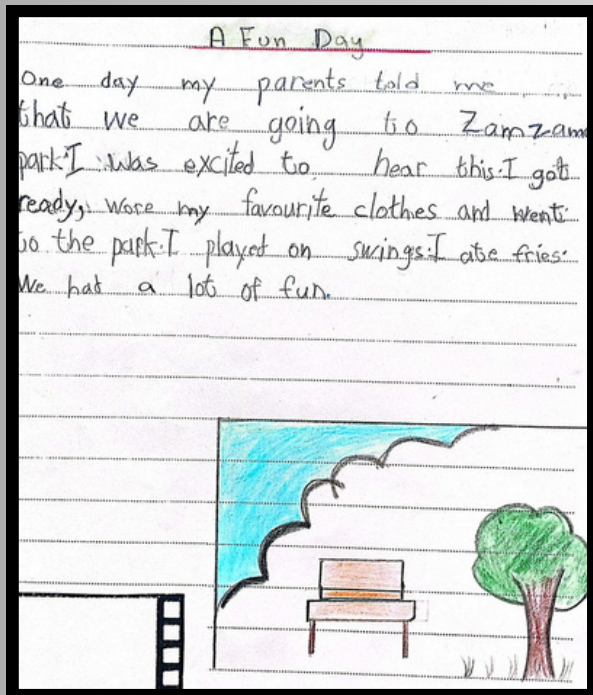 A Fun Day
One day my parents told me
that we are going to Zamzama
park.I was excited to hear this.I got
ready, wore my favourite clothes and went
to the park.I played on swings.I ate fries.
We had a lot of fun.